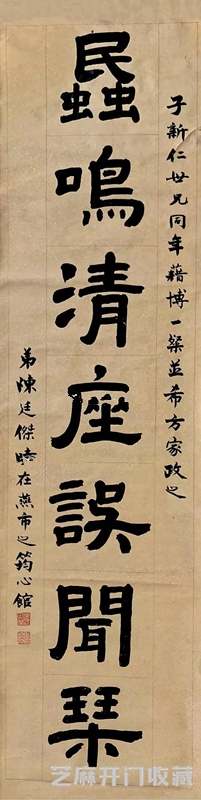 子新仁世兄同年藉博一粲並希方家政之
蟁鳴清座誤聞琹
弟陳廷傑時在燕市之筠心館
芝麻开门收藏